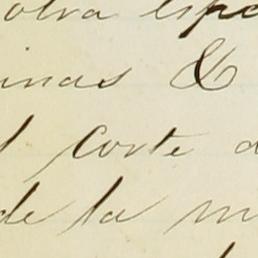 otra espe
inas &
l corte d
de la m